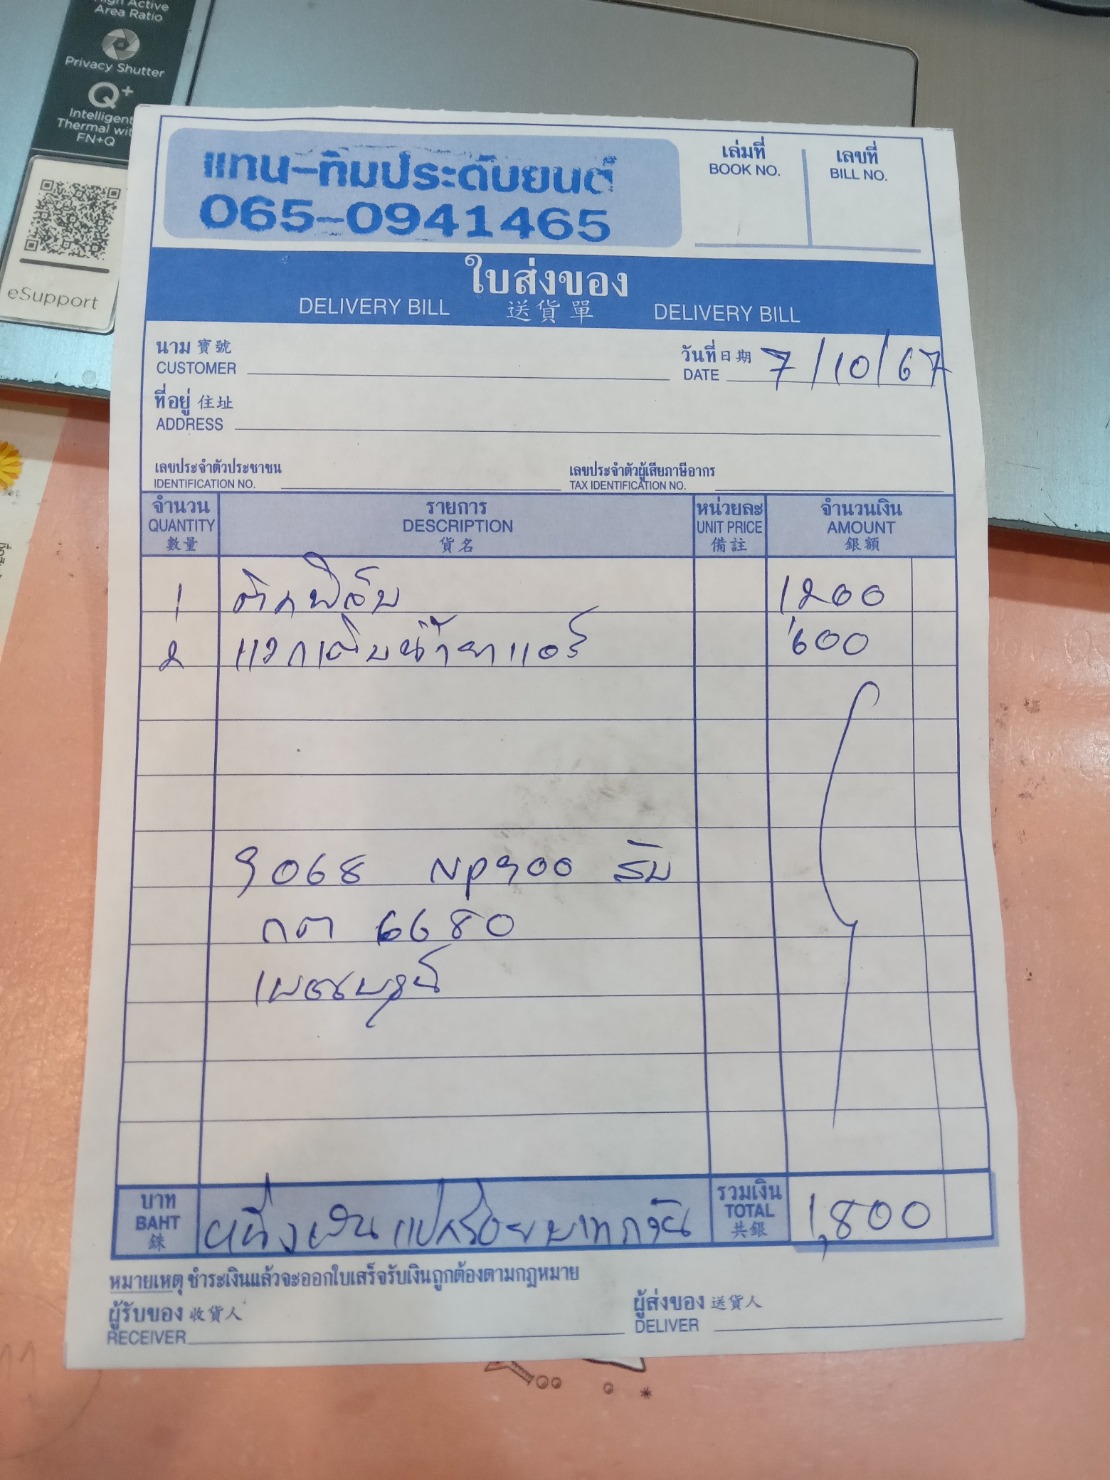 High Active
Area Ratio
Privacy Shutter
Q+
Intelligent
Thermal wit
FN+Q
eSupport
แทน-ทิมประดับยนต์
065-0941465
เล่มที่
BOOK NO.
เลขที่
BILL NO.
ใบส่งของ
DELIVERY BILL 送貨單 DELIVERY BILL
นาม 寶號
CUSTOMER
วันที่ 日期 7/10/67
DATE
ที่อยู่ 住址
ADDRESS
เลขประจำตัวประชาชน
IDENTIFICATION NO.
เลขประจำตัวผู้เสียภาษีอากร
TAX IDENTIFICATION NO.
จำนวน รายการ หน่วยละ จำนวนเงิน
QUANTITY DESCRIPTION UNIT PRICE AMOUNT
數量 貨名 備註 銀額
1 ติดฟิล์ม 1200
2 แวคเติมน้ำยาแอร์ 600
9068 NP900
กต 6680
เพชรบูรณ์
บาท
BAHT
銖
หนึ่งพันแปดร้อยบาทถ้วน
รวมเงิน
TOTAL
共銀
1,800
หมายเหตุ ชำระเงินแล้วจะออกใบเสร็จรับเงินถูกต้องตามกฎหมาย
ผู้รับของ 收貨人
RECEIVER
ผู้ส่งของ 送貨人
DELIVER